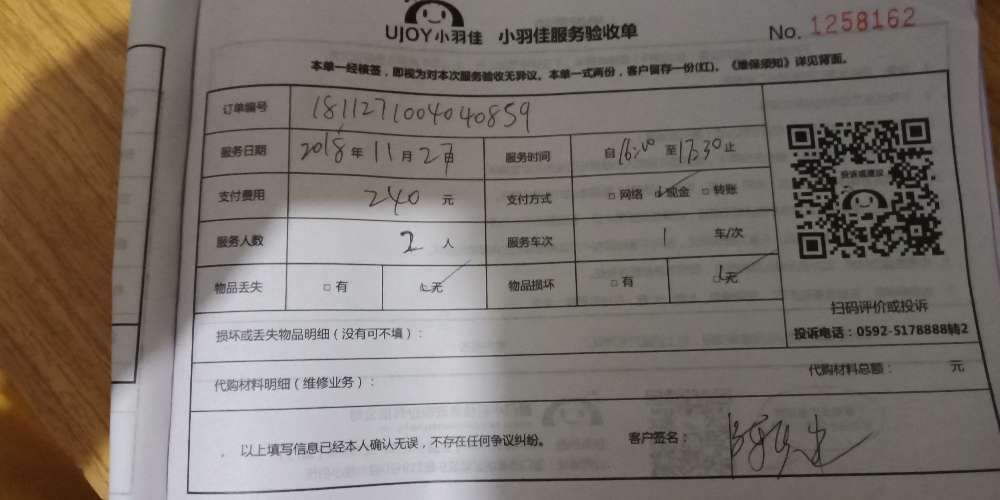 UJOY小羽佳 小羽佳服务验收单 No. 1258162
本单一经核签，即视为对本次服务验收无异议。本单一式两份，客户留存一份(红)。《维保须知》详见背面。
订单编号 1811271004040859
服务日期 2018年11月27日 服务时间 自16:00至17:30止
支付费用 240元 支付方式 □网络 ☑现金 □转账
服务人数 2人 服务车次 1 车/次
物品丢失 □有 ☑无 物品损坏 □有 ☑无
投诉或建议
扫码评价或投诉
投诉电话：0592-5178888转2
损坏或丢失物品明细（没有可不填）：
代购材料明细（维修业务）： 代购材料总额： 元
以上填写信息已经本人确认无误，不存在任何争议纠纷。 客户签名：